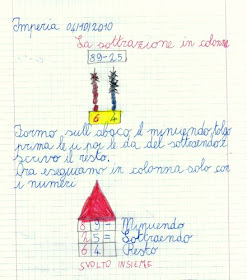 Imperia 04/10/2010
La sottrazione in colonna
89-25
6 4
Formo sull'abaco il minuendo, tolgo
prima le u poi le da del sottraendo e
scrivo il resto,
ora eseguiamo in colonna solo con
i numeri
8 9 - Minuendo
2 5 = Sottraendo
6 4 Resto
SVOLTO INSIEME